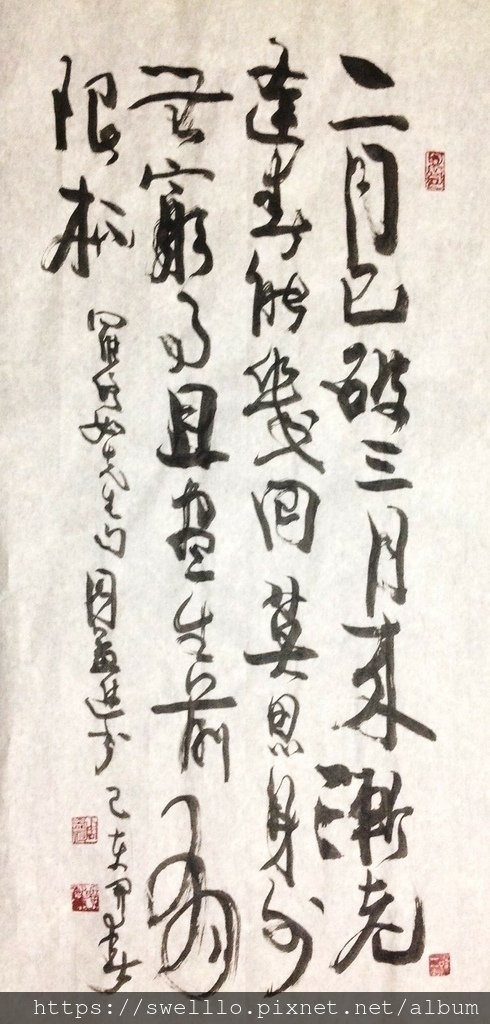 二月已破三月来漸老
逢春能幾回莫思身外
無窮事且盡生前有
限杯
先生句
書
己亥
春
https://swelllo.pixnet.net/album